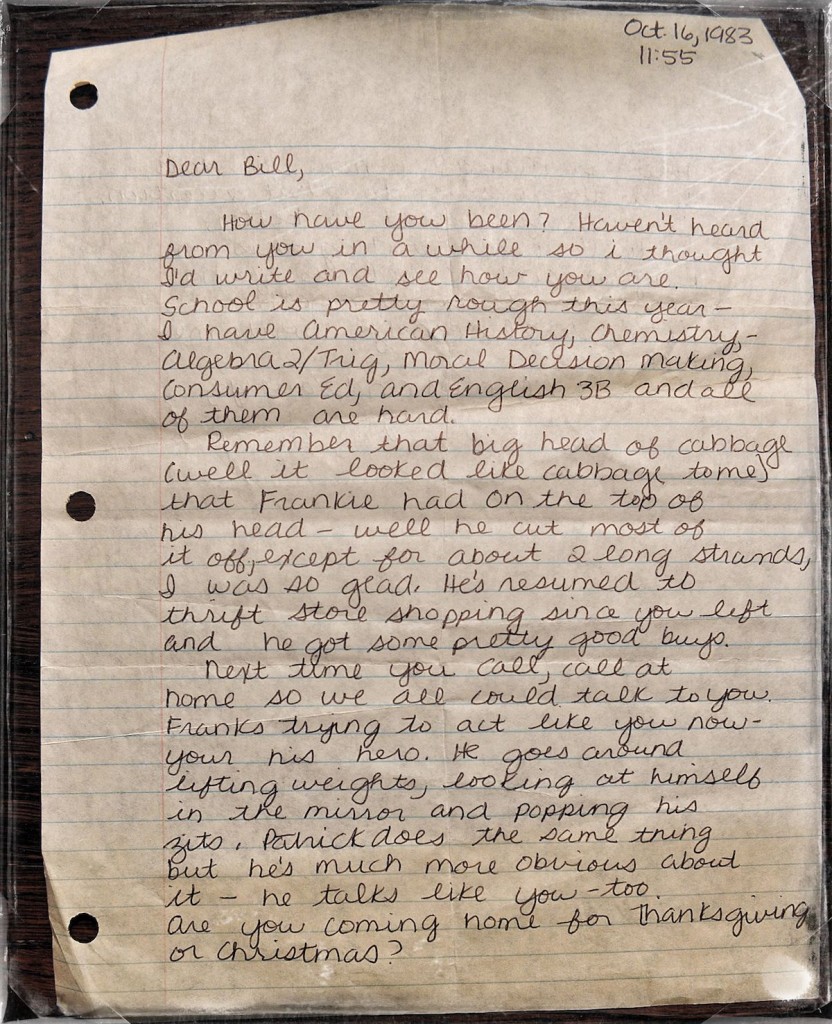 Oct. 16, 1983
11:55
Dear Bill,
How have you been? Haven't heard
from you in a while so i thought
I'd write and see how you are.
School is pretty rough this year-
I have American History, Chemistry,-
Algebra 2/Trig, Moral Decision making,
Consumer Ed, and English 3B and all
of them are hard.
Remember that big head of cabbage
(well it looked like cabbage to me)
that Frankie had on the top of
his head - well he cut most of
it off, except for about 2 long strands,
I was so glad. He's resumed to
thrift store shopping since you left
and he got some pretty good buys.
Next time you call, call at
home so we all could talk to you.
Franks trying to act like you now-
your his hero. He goes around
lifting weights, looking at himself
in the mirror and popping his
zits. Patrick does the same thing
but he's much more obvious about
it - he talks like you - too.
Are you coming home for Thanksgiving
or Christmas?